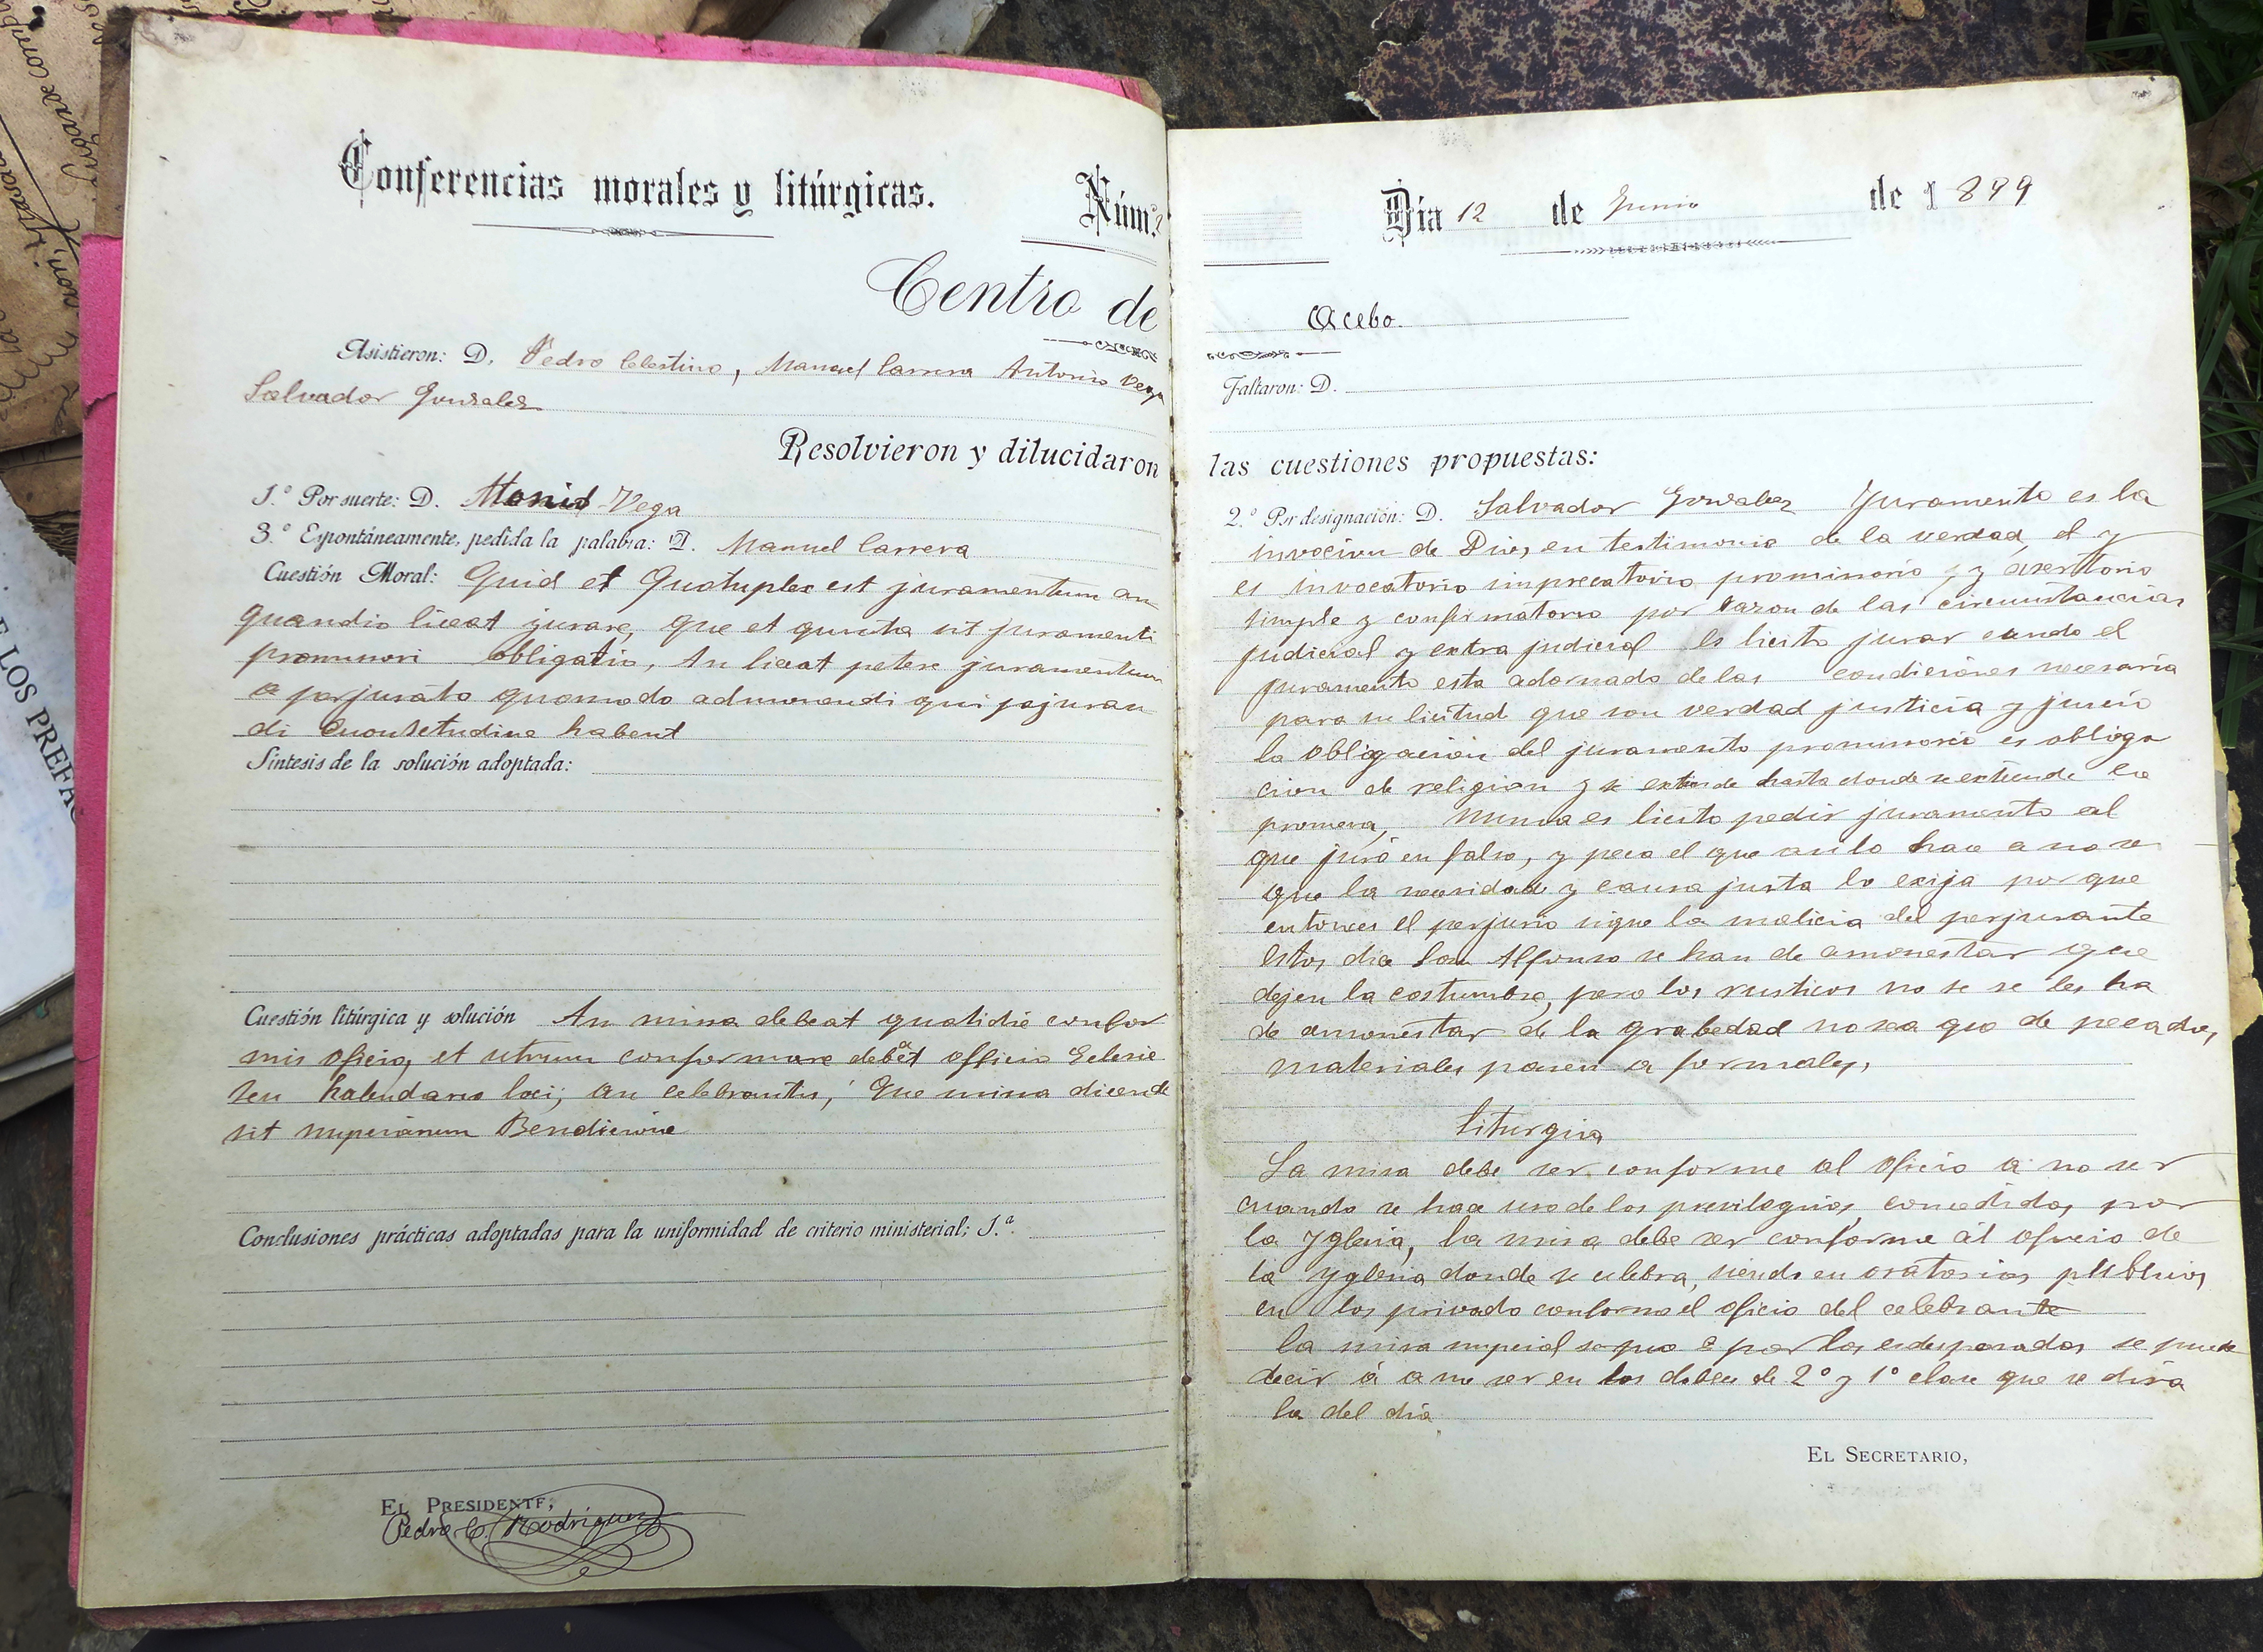 Conferencias morales y litúrgicas.
Núm.
Centro de
Asistieron: D. Pedro Celestino, Manuel Carrera Antonio Vega
Salvador Gonzalez
Resolvieron y dilucidaron
1.º Por suerte: D. Vega
3.º Espontáneamente, pedida la palabra: D. Manuel Carrera
Cuestión Moral: Quid et Quotuplex est juramentum an
quandio liceat jurare, Que et qunita sit juramenti
promisori obligatio, An liceat petere juramentum
a perjurato quomodo admonendi qui pejuran
di Cuonsetudine habent
Síntesis de la solución adoptada:
Cuestión litúrgica y solución An missa debeat quotidie confor
mis oficio, et utrum conformare debeat officio Eclesie
seu kalendario loci; an celebrantis; Que missa dicende
sit Bendicione
Conclusiones prácticas adoptadas para la uniformidad de criterio ministerial; 1.ª
El Presidente,
Pedro C. Rodriguez
Día 12 de Junio de 1899
Acebo.
Faltaron: D.
las cuestiones propuestas:
2.º Por designación: D. Salvador Gonzalez Juramento es la
invocion de Dios, en testimonio de la verdad, el y
es invocatorio imprecatorio promissorio, y asertorio
simple y confirmatorio por razon de las circunstancias
judicial y extra judicial es licito jurar cuando el
juramento esta adornado de las condiciones necesaria
para su licitud que son verdad justicia y juicio
la obligacion del juramento promissorio es obliga
cion de religion y se extiende hasta donde se extiende la
promesa, Nunca es licito pedir juramento al
que juró en falso, y peca el que asi lo hace a no se
que la necesidad y causa justa lo exija por que
entonces el perjurio sigue la malicia del perjurante
Estos dice San Alfonso se han de amonestar que
dejen la costumbre, pero los rusticos no se se les ha
de amonestar de la grabedad no sea que de pecados,
materiales pasen a formales,
Liturgia
La misa debe ser conforme al oficio a no ser
cuando se hace uso de los previlegios, concedidos por
la Yglesia, la misa debe ser conforme al oficio de
la Yglesia donde se celebra, siendo en oratorios publicos,
en los privado conforme el oficio del celebrante
la misa por los se puede
decir á a no ser en los de 2º y 1º clase que se dira
la del dia
El Secretario,